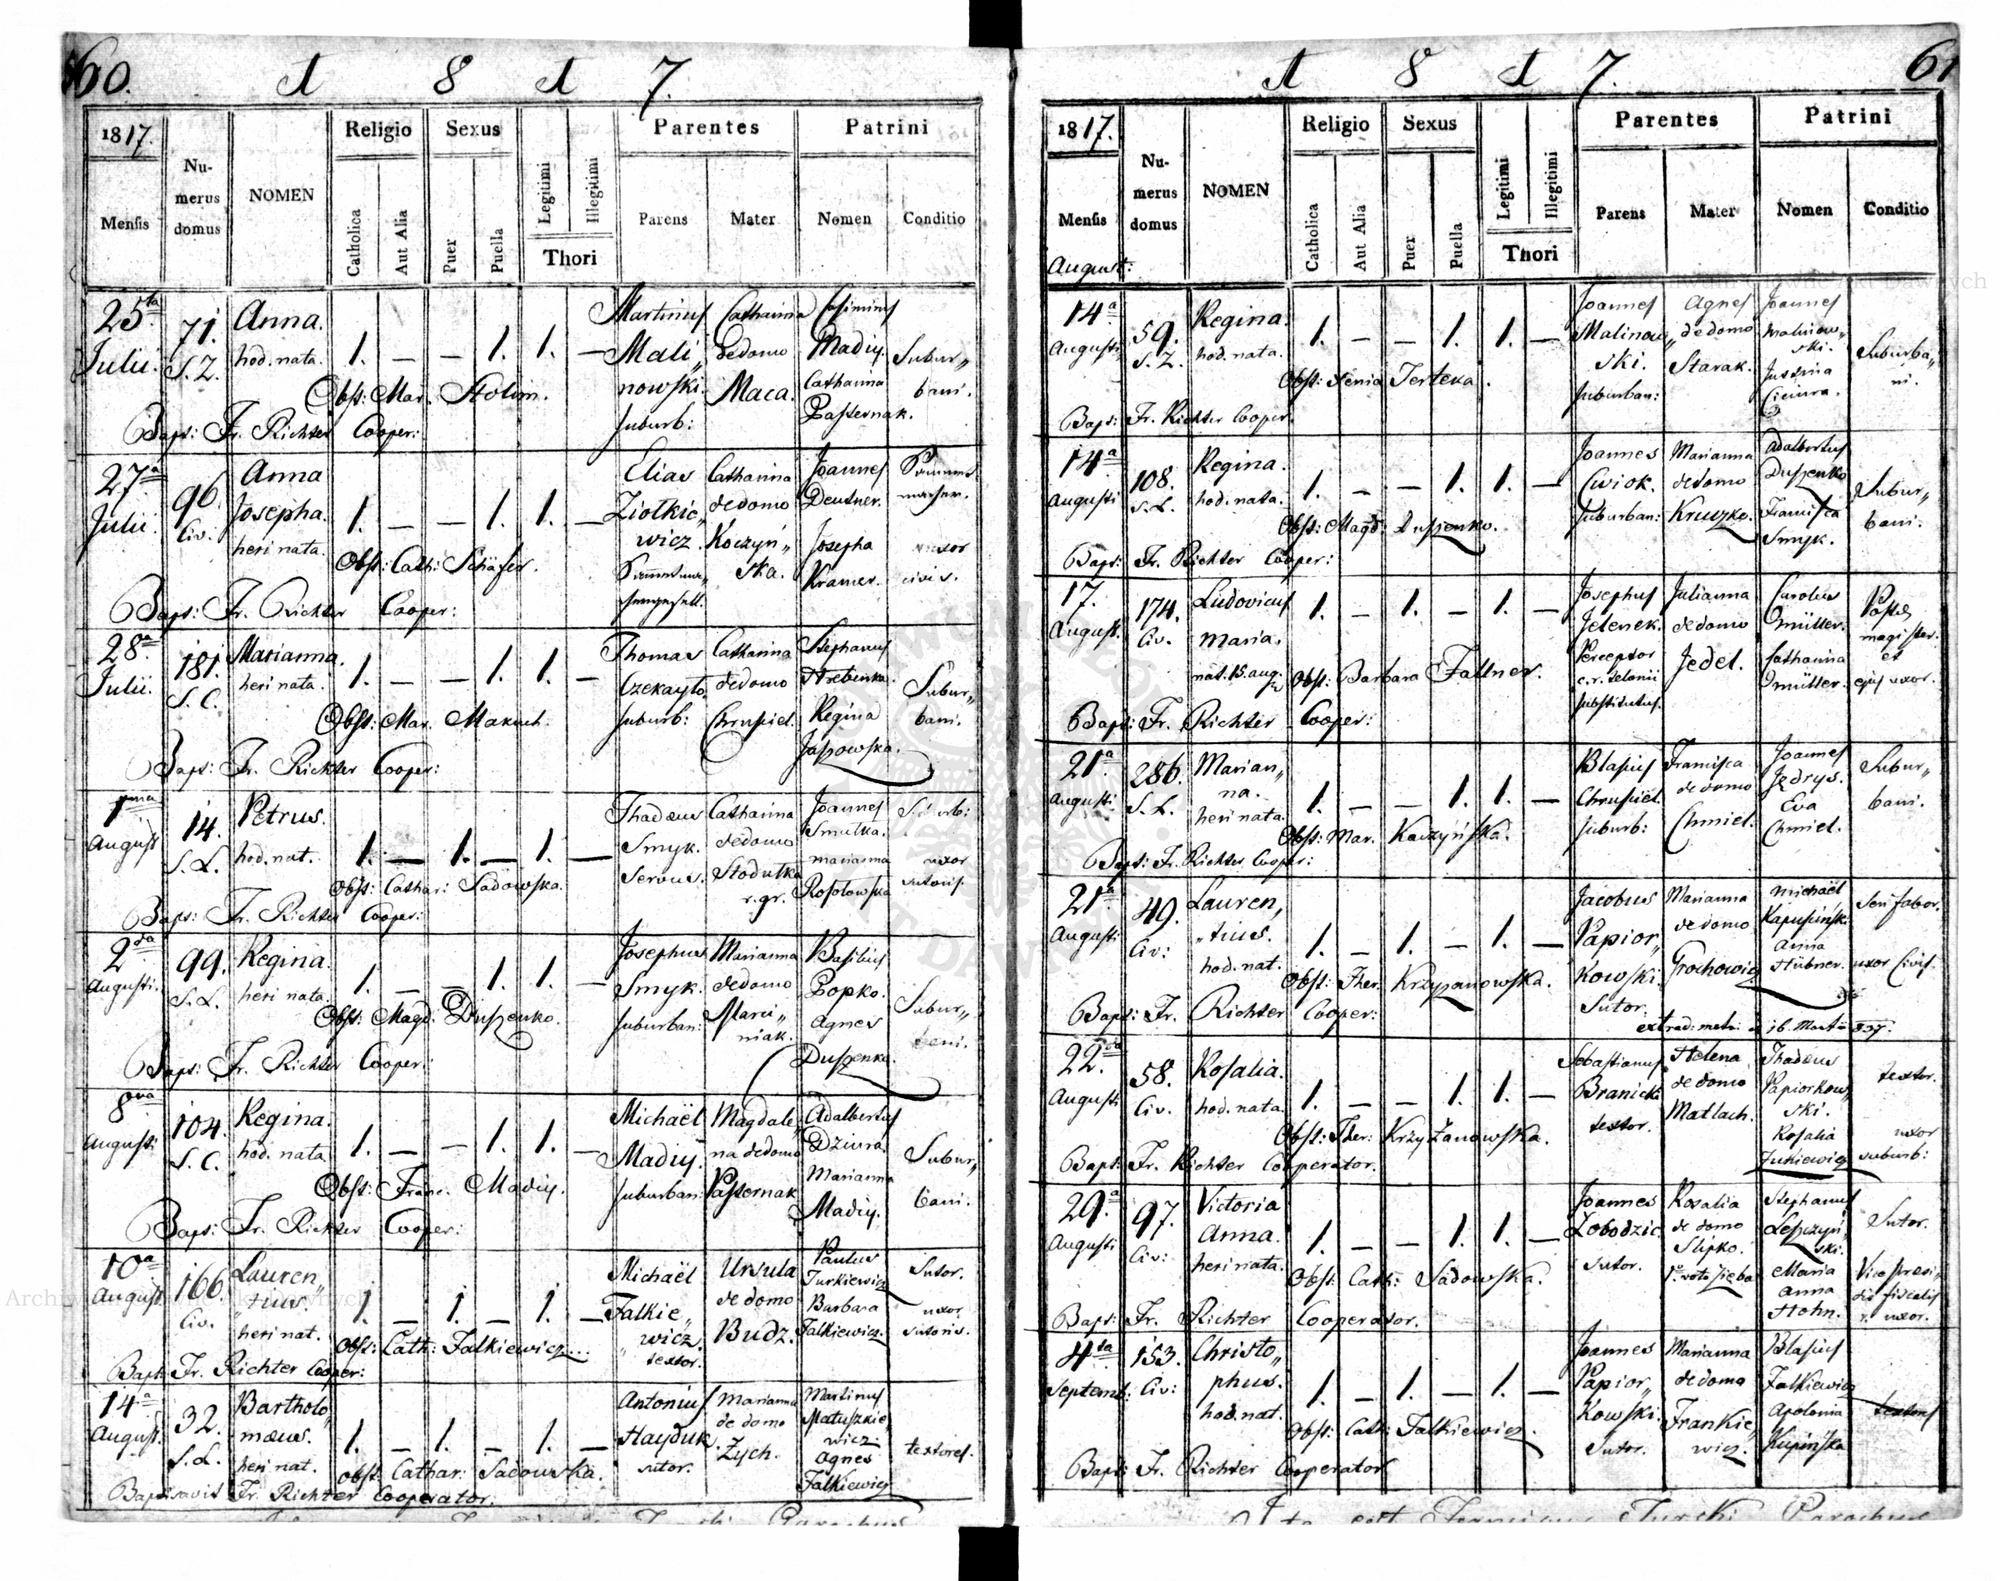 60. 1 8 1 7.
1817. Numerus domus NOMEN Religio Sexus Legitimi Illegitimi Parentes Patrini
Mensis Catholica Aut Alia Puer Puella Thori Parens Mater Nomen Conditio
25ta 71. Anna. Martinus Catharina Casimirus
Julii. S. Z. hod. nata. 1. — — 1. 1. — Mali„ de domo Madiy. Subur„
nowski. Maca. Catharina bani.
Obst: Mar. Stolim. Suburb: Pasternak.
Bapt: Fr. Richter Cooper:
27a 96 Anna Elias Catharina Joannes
Julii. Civ. Josepha. 1. — — 1. 1. — Ziolkie„ de domo Deutner.
heri nata. wicz Koczyń„ Josepha uxor
Obst: Cath: Schäfer. ska. Kramer. civis.
Bapt: Fr. Richter Cooper:
28a 181. Marianna. Thomas Catharina Stephanus
Julii. S. C. heri nata. 1. — — 1. 1. — Czekayło, de domo Hrebinka. Subur„
Obst: Mar. Makuch. Suburb: Chrusiel. Regina bani.
Jassowska.
Bapt: Fr. Richter Cooper:
1ma 14. Petrus. Thadæus Catharina Joannes Suburb:
August S. L. hod. nat. 1. — 1. — 1. — Smyk. de domo Smutka.
Servus. Stodulka marianna uxor
Obst: Cathar: Sadowska. r. gr. Rosolowska sutoris.
Bapt: Fr. Richter Cooper:
2da 99. Regina. Josephus Marianna Basilius
Augusti. S. L. heri nata. 1. — — 1. 1. — Smyk. de domo Popko. Subur„
Obst: Magd. Duszenko. Suburban: Maru„ Agnes bani.
niak. Duszenka.
Bapt: Fr. Richter Cooper:
8va 104. Regina. Michaël Magdale„ Adalbertus
Augusti. S. C. hod. nata 1. — — 1. 1. — Madiy. na de domo Dziura. Subur„
Obst: Franc. Madiy. Suburban: Pasternak Marianna bani.
Madiy.
Bapt: Fr. Richter Cooper:
10a 166. Lauren„ Michaël Ursula Paulus Sutor.
August. Civ. tius. 1. — 1. — 1. — Falkie„ de domo Turkiewicz
heri nat. wicz. Budz. Barbara uxor
Obst: Cath: Falkiewicz. textor. Falkiewicz. sutoris.
Bapt: Fr. Richter Cooper:
14a 32. Bartholo„ Antonius Marianna Martinus
August. S. L. mæus. 1. — 1. — 1. — Hayduk. de domo Matuszkie„
heri nat. sutor. Zych. wicz. textores.
Obst: Cathar: Sadowska. Agnes
Falkiewicz
Baptisavit Fr. Richter Cooperator.
1 8 1 7. 61
1817. Numerus domus NOMEN Religio Sexus Legitimi Illegitimi Parentes Patrini
Mensis Catholica Aut Alia Puer Puella Thori Parens Mater Nomen Conditio
August:
14a 59. Regina. Joannes Agnes Joannes
Augusti. S. Z. hod. nata. 1. — — 1. 1. — Malinow„ de domo Malinow„ Suburba„
ski. Starak. ski. ni.
Obst: Xenia Terteka. Suburban: Justina
Ciciura.
Bapt: Fr. Richter Cooper.
14a 108. Regina. Joannes Marianna Adalbertus
Augusti S. L. hod. nata. 1. — — 1. 1. — Cwiok. de domo Duszenko Subur„
Obst: Magd: Duszenko. Suburban: Kruczko. Francisca bani.
Smyk.
Bapt: Fr. Richter Cooper:
17. 174. Ludovicus Josephus Julianna Carolus
August. Civ. Maria. 1. — 1. — 1. — Jelenek. de domo Müller. magister.
nat. 15. aug. Perceptor Jedel. Catharina et
Obst: Barbara Fallner. c. r. telonii Müller. ejus uxor.
substitutus.
Bapt: Fr. Richter Cooper:
21a 286. Marian„ Blasius Francisca Joannes Subur„
Augusti S. L. na. 1. — — 1. 1. — Chrusiel. de domo Jędrys. bani.
heri nata. Suburb: Chmiel. Eva
Obst: Mar. Kaczyńska. Chmiel.
Bapt: Fr. Richter Cooper:
21a 49. Lauren„ Jacobus Marianna Michaël
August: Civ: „tius. 1. — 1. — 1. — Papior„ de domo Kapusiński
hod. nat. kowski. Grochowicz Anna
Obst: Ther. Krzyżanowska. Sutor. Hübner. uxor Civis.
Bapt: Fr. Richter Cooper:
22da 58. Rosalia. Sebastianus Helena Thadæus
Augusti Civ. hod. nata. 1. — — 1. 1. — Branicki de domo Papiorkow„ textor.
textor. Matlach. ski.
Obst: Ther: Krzyżanowska. Rosalia uxor
Żukiewicz suburb:
Bapt: Fr. Richter Cooperator.
29a 97. Victoria Joannes Rosalia Stephanus
Augusti Civ: Anna. 1. — — 1. 1. — Łobodzic de domo Leszczyń„ Sutor.
heri nata. sutor. Slipko. ski.
Obst: Cath: Sadowska. 1o voto Zięba Maria
Anna
Hohn. uxor.
Bapt: Fr. Richter Cooperator.
4ta 153. Christo„ Joannes Marianna Blasius
Septemb: Civ: phus. 1. — 1. — 1. — Papior„ de domo Falkiewicz
hod. nat. kowski. Frankie„ Apolonia textores
Obst: Cath: Falkiewicz. Sutor. wicz. Kupińska
Bapt: Fr. Richter Cooperator